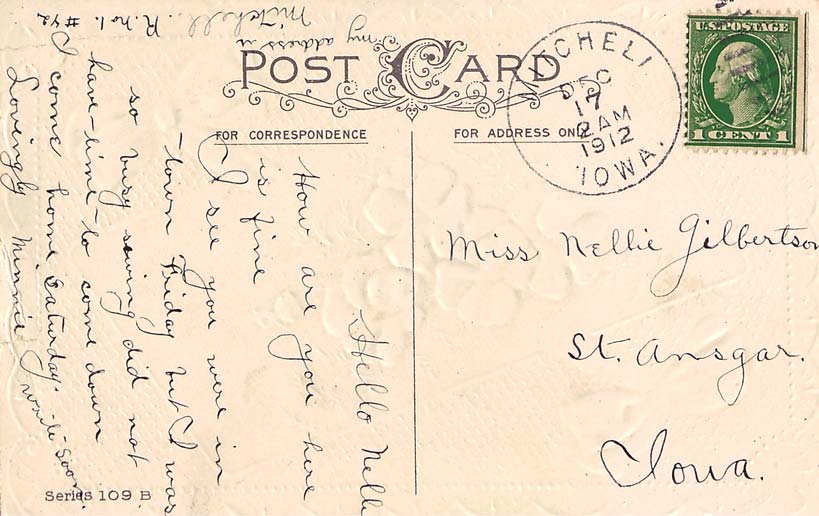 POST CARD
FOR CORRESPONDENCE
FOR ADDRESS ONLY
MITCHELL
DEC
17
2 AM
1912
IOWA.
U.S. POSTAGE
1 CENT 1
Miss Nellie Gilbertson
St. Ansgar.
Iowa.
Hello Nell
How are you here
is fine
I see you were in
-town Friday but I was
so busy sewing did not
have-time-to come down
I come home Saturday.
write Soon.
Lovingly Minnie
my address is
Mitchell. R. no 1. #42
Series 109 B